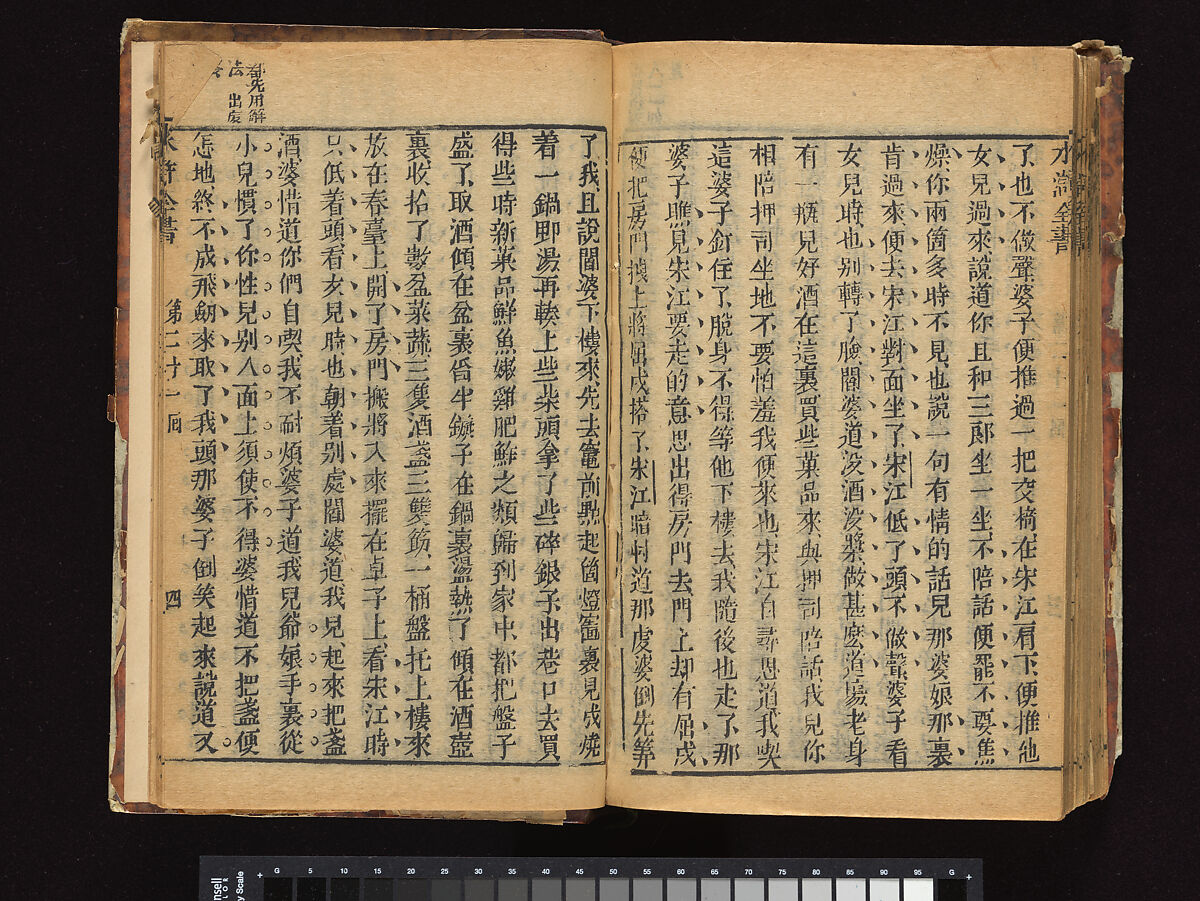 水滸全書
了、也不做聲婆子便推過一把交椅在宋江肩下、便推他
女兒過來說道你且和三郎坐一坐不陪話便罷不要焦
燥你兩箇多時不見也說一句有情的話兒那婆娘那裏
肯過來便去宋江對面坐了宋江低了頭不做聲婆子看
女兒時也别轉了臉閻婆道没酒没漿做甚麼道塲老身
有一瓶兒好酒在這裏買些菓品來與押司陪話我兒你
相陪押司坐地不要怕羞我便來也宋江自尋思道我喫
這婆子釘住了脫身不得等他下樓去我隨後也走了那
婆子瞧見宋江要走的意思出得房門去門上却有屈戌
便把房門拽上將屈戌搭了宋江暗忖道那虔婆倒先筭
了我且說閻婆下樓來先去竈前點起箇燈竈裏見成燒
着一鍋脚湯再輳上些柴頭拿了些碎銀子出巷口去買
得些時新菓品鮮魚嫩雞肥鮓之類歸到家中都把盤子
盛了取酒傾在盆裏舀半鏇子在鍋裏盪熱了傾在酒壺
裏收拾了數盆菜蔬三隻酒盞三雙筯一桶盤托上樓來
放在春臺上開了房門搬將入來擺在卓子上看宋江時
只低着頭看女兒時也朝着别處閻婆道我兒起來把盞
酒婆惜道你們自喫我不耐煩婆子道我兒爺娘手裏從
小兒慣了你性兒别人面上須使不得婆惜道不把盞便
怎地終不成飛劒來取了我頭那婆子倒笑起來說道又
水滸全書 第二十一回 四
都先用解
法 出處
G 5 10 15 20 25 30 35 40 45 50 55 60 65 70 75 80 85 90 95 G